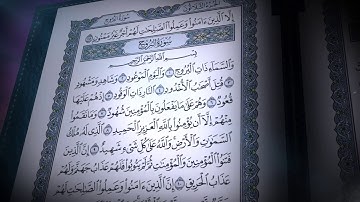 سُورَةُ البُرُوجِ
إِلَّا ٱلَّذِينَ ءَامَنُوا۟ وَعَمِلُوا۟ ٱلصَّٰلِحَٰتِ لَهُمْ أَجْرٌ غَيْرُ مَمْنُونٍۭ ﴿٢٥﴾
سُورَةُ البُرُوجِ
بِسْمِ ٱللَّهِ ٱلرَّحْمَٰنِ ٱلرَّحِيمِ
وَٱلسَّمَآءِ ذَاتِ ٱلْبُرُوجِ ﴿١﴾ وَٱلْيَوْمِ ٱلْمَوْعُودِ ﴿٢﴾ وَشَاهِدٍ وَمَشْهُودٍ
﴿٣﴾ قُتِلَ أَصْحَٰبُ ٱلْأُخْدُودِ ﴿٤﴾ ٱلنَّارِ ذَاتِ ٱلْوَقُودِ ﴿٥﴾ إِذْ هُمْ عَلَيْهَا
قُعُودٌ ﴿٦﴾ وَهُمْ عَلَىٰ مَا يَفْعَلُونَ بِٱلْمُؤْمِنِينَ شُهُودٌ ﴿٧﴾ وَمَا نَقَمُوا۟
مِنْهُمْ إِلَّآ أَن يُؤْمِنُوا۟ بِٱللَّهِ ٱلْعَزِيزِ ٱلْحَمِيدِ ﴿٨﴾ ٱلَّذِى لَهُۥ مُلْكُ
ٱلسَّمَٰوَٰتِ وَٱلْأَرْضِ وَٱللَّهُ عَلَىٰ كُلِّ شَىْءٍ شَهِيدٌ ﴿٩﴾ إِنَّ ٱلَّذِينَ
فَتَنُوا۟ ٱلْمُؤْمِنِينَ وَٱلْمُؤْمِنَٰتِ ثُمَّ لَمْ يَتُوبُوا۟ فَلَهُمْ عَذَابُ جَهَنَّمَ وَلَهُمْ
عَذَابُ ٱلْحَرِيقِ ﴿١٠﴾ إِنَّ ٱلَّذِينَ ءَامَنُوا۟ وَعَمِلُوا۟ ٱلصَّٰلِحَٰتِ لَهُمْ